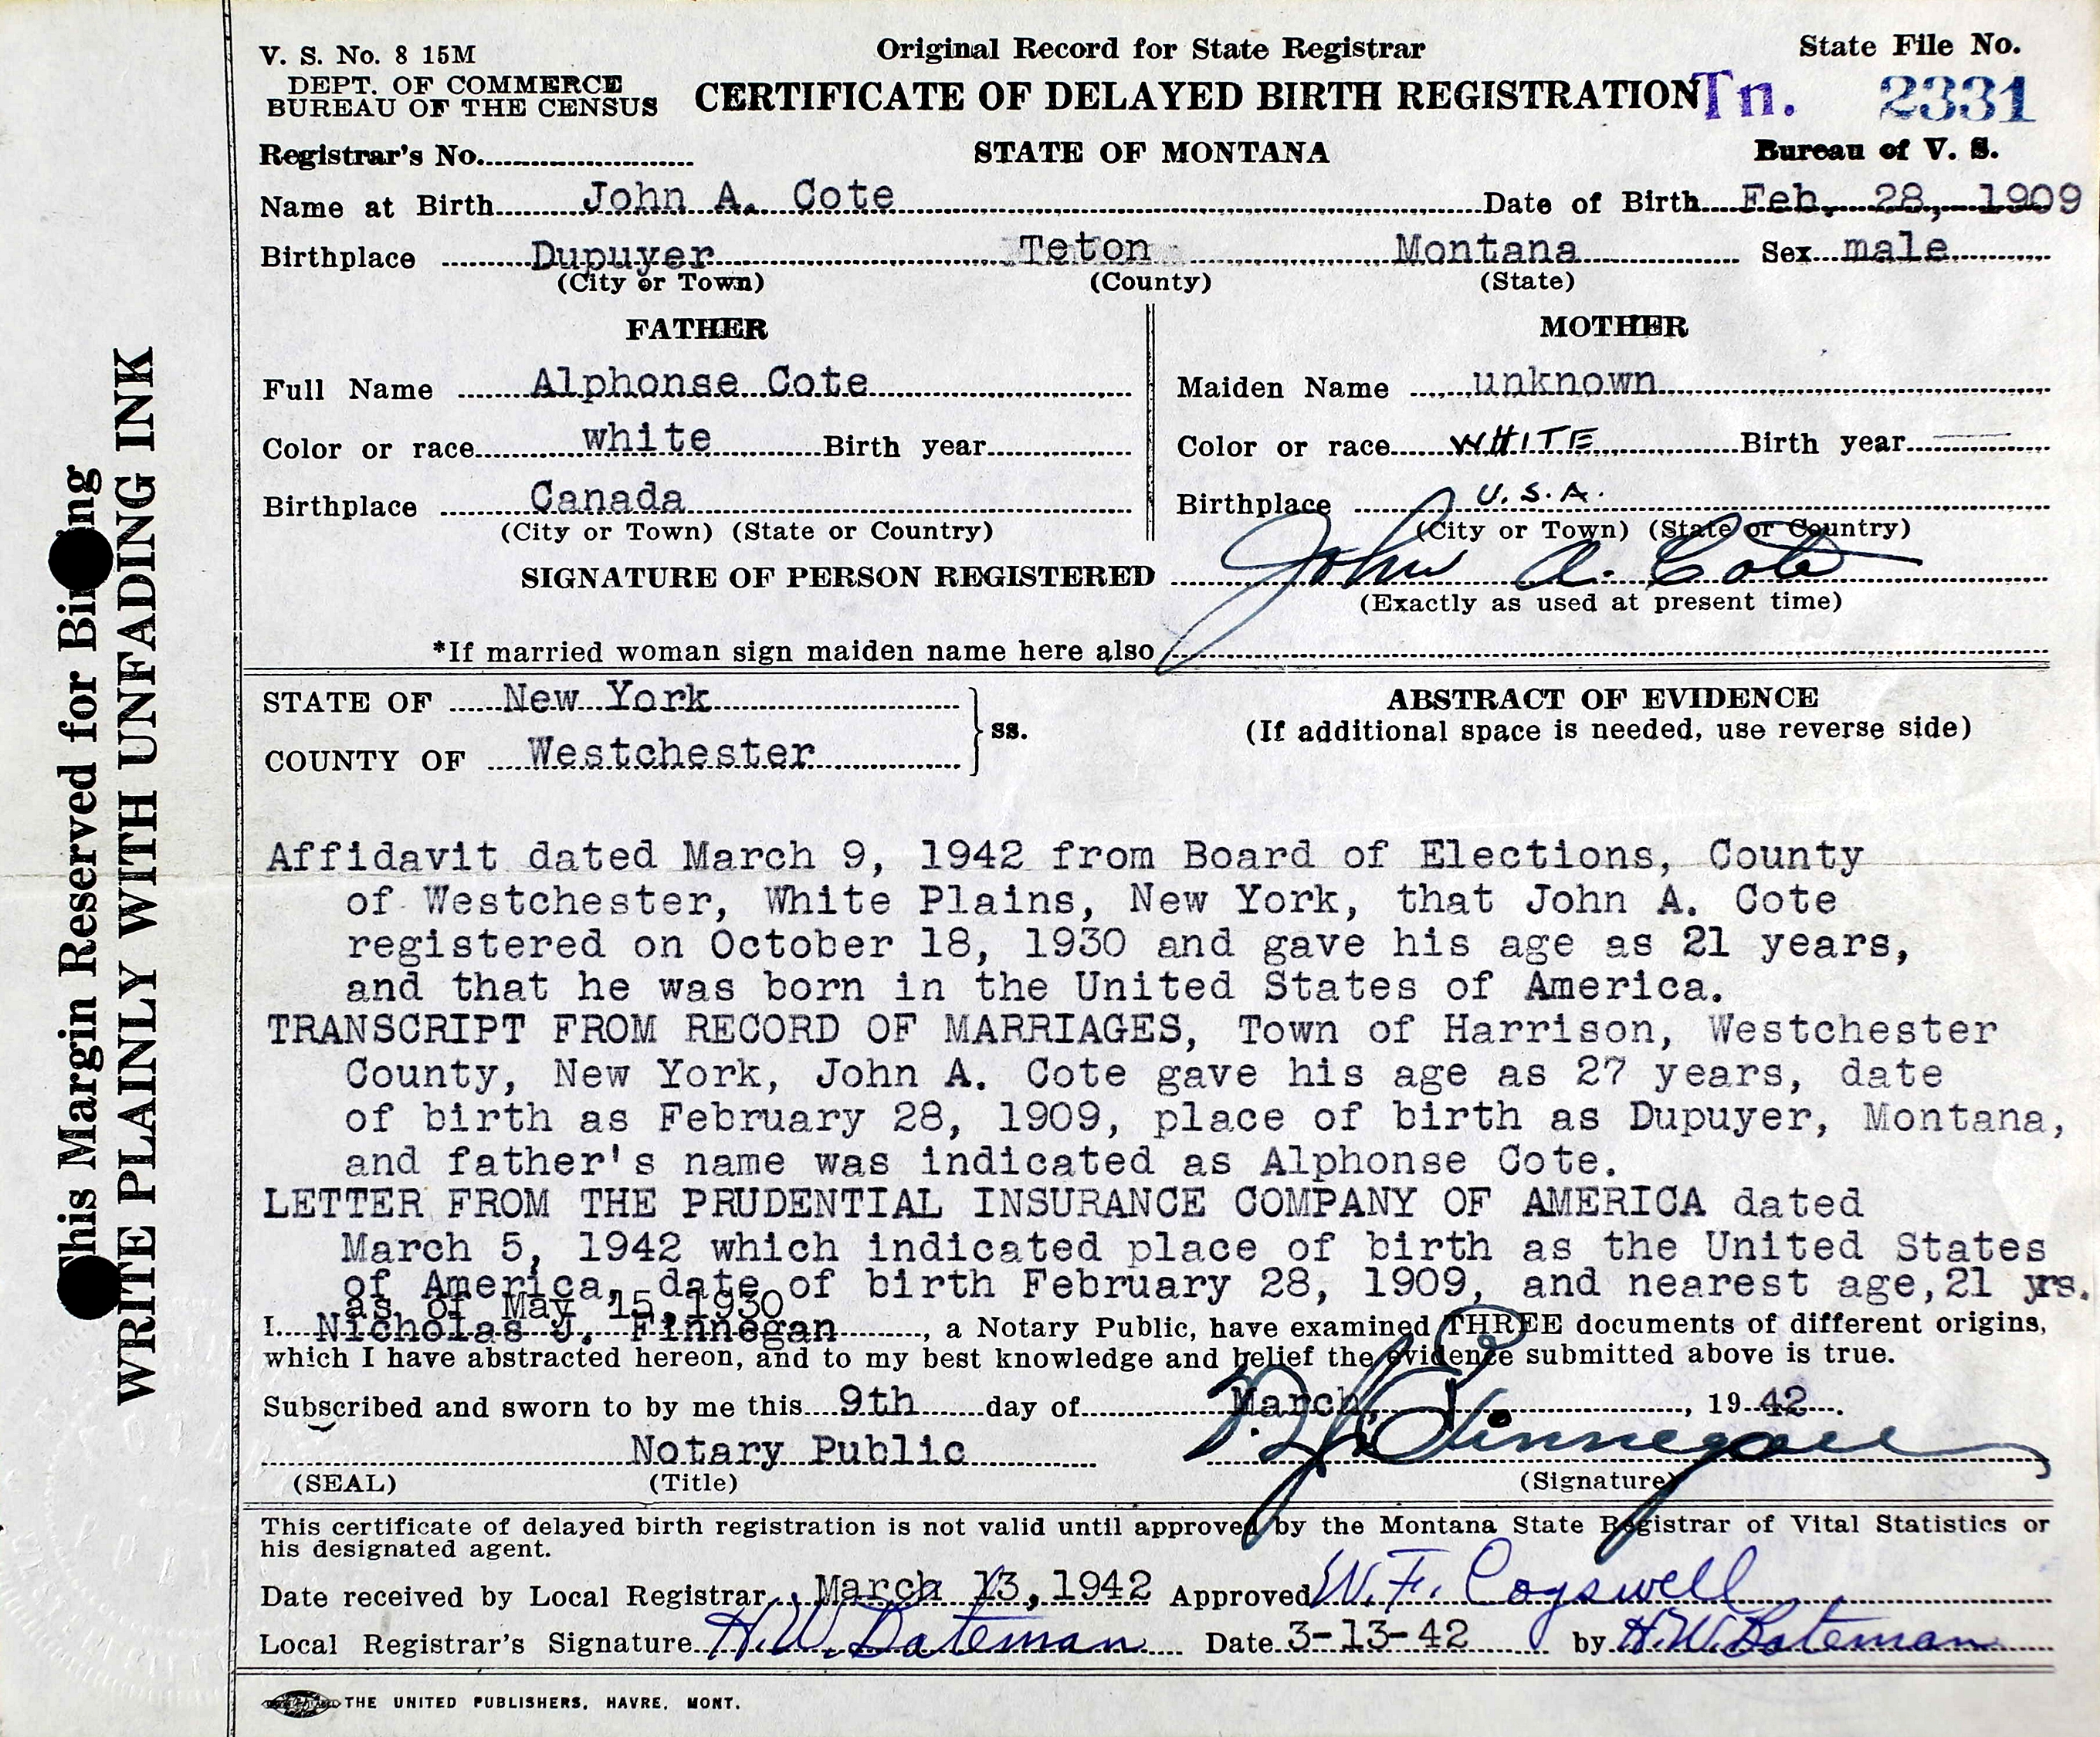 V. S. No. 8 15M
DEPT. OF COMMERCE
BUREAU OF THE CENSUS
Original Record for State Registrar
CERTIFICATE OF DELAYED BIRTH REGISTRATION
State File No.
Tn. 2331
Registrar's No.
STATE OF MONTANA
Bureau of V. S.
Name at Birth John A. Cote Date of Birth Feb. 28, 1909
Birthplace Dupuyer Teton Montana Sex male
(City or Town) (County) (State)
FATHER
Full Name Alphonse Cote
Color or race white Birth year
Birthplace Canada
(City or Town) (State or Country)
MOTHER
Maiden Name unknown
Color or race WHITE Birth year
Birthplace U.S.A.
(City or Town) (State or Country)
SIGNATURE OF PERSON REGISTERED John A. Cote
(Exactly as used at present time)
*If married woman sign maiden name here also
STATE OF New York
COUNTY OF Westchester
ss.
ABSTRACT OF EVIDENCE
(If additional space is needed, use reverse side)
Affidavit dated March 9, 1942 from Board of Elections, County
of Westchester, White Plains, New York, that John A. Cote
registered on October 18, 1930 and gave his age as 21 years,
and that he was born in the United States of America.
TRANSCRIPT FROM RECORD OF MARRIAGES, Town of Harrison, Westchester
County, New York, John A. Cote gave his age as 27 years, date
of birth as February 28, 1909, place of birth as Dupuyer, Montana,
and father's name was indicated as Alphonse Cote.
LETTER FROM THE PRUDENTIAL INSURANCE COMPANY OF AMERICA dated
March 5, 1942 which indicated place of birth as the United States
of America, date of birth February 28, 1909, and nearest age,21 yrs.
as of May 15,1930
I Nicholas J. Finnegan, a Notary Public, have examined THREE documents of different origins,
which I have abstracted hereon, and to my best knowledge and belief the evidence submitted above is true.
Subscribed and sworn to by me this 9th day of March, 1942.
Notary Public N. J. Finnegan
(SEAL) (Title) (Signature)
This certificate of delayed birth registration is not valid until approved by the Montana State Registrar of Vital Statistics or
his designated agent.
Date received by Local Registrar March 13,1942 Approved W. F. Cogswell
Local Registrar's Signature H.W. Bateman Date 3-13-42 by H.W. Bateman
THE UNITED PUBLISHERS, HAVRE, MONT.
This Margin Reserved for Binding
WRITE PLAINLY WITH UNFADING INK